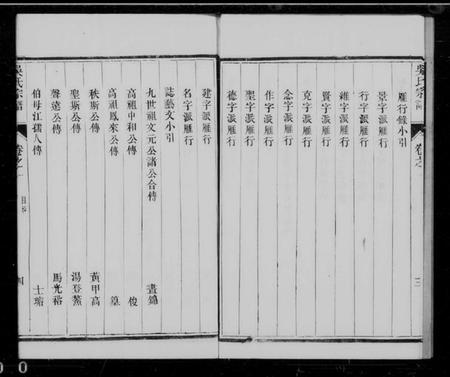 吳氏宗譜
卷之
三
雁行錄小引
景字派雁行
行字派雁行
維字派雁行
賢字派雁行
克字派雁行
念字派雁行
作字派雁行
聖字派雁行
德字派雁行
建字派雁行
名字派雁行
誌藝文小引
九世祖文元公諸公合傳 晝錦
高祖中和公傳 俊
高祖鳳來公傳
秩斯公傳 黃甲高
聖斯公傳 湯登
聲遠公傳 馬光裕
伯母江孺人傳 士瑨
吳氏宗譜
卷之
目錄
四
0 0